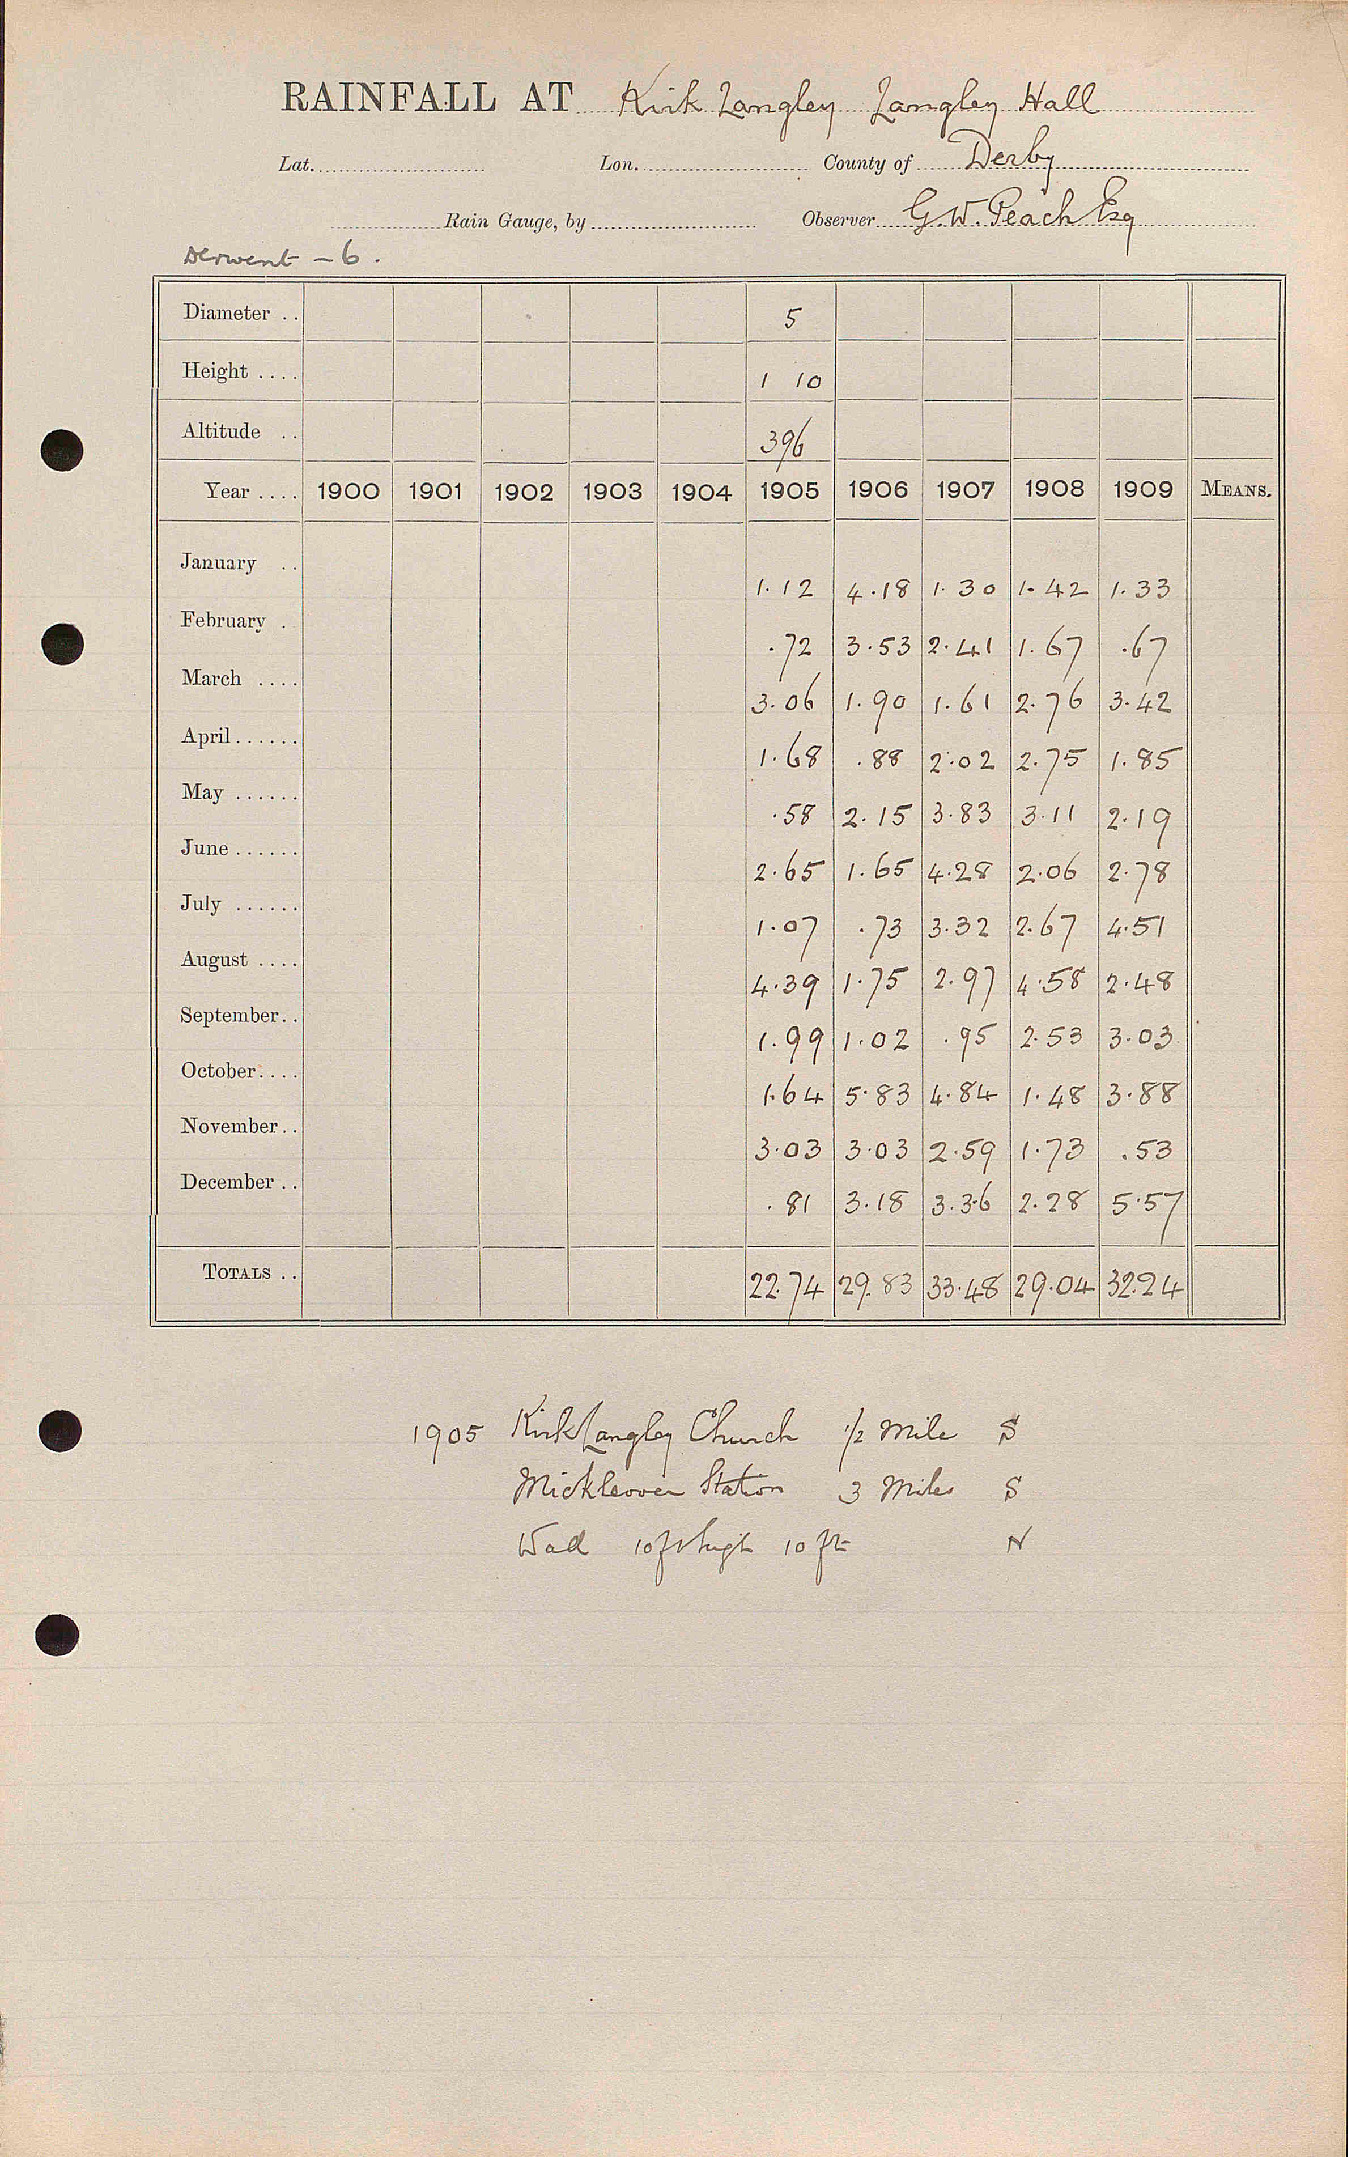 RAINFALL AT Kirk Langley Langley Hall
Lat. Lon. County of Derby
Rain Gauge, by Observer G. W. Peach Esq
Derwent - 6.
Diameter .. 5
Height .... 1 10
Altitude .. 396
Year .... 1900 1901 1902 1903 1904 1905 1906 1907 1908 1909 MEANS.
January .. 1.12 4.18 1.30 1.42 1.33
February . .72 3.53 2.41 1.67 .67
March .... 3.06 1.90 1.61 2.76 3.42
April...... 1.68 .88 2.02 2.75 1.85
May ...... .58 2.15 3.83 3.11 2.19
June ...... 2.65 1.65 4.28 2.06 2.78
July ...... 1.07 .73 3.32 2.67 4.51
August .... 4.39 1.75 2.97 4.58 2.48
September.. 1.99 1.02 .95 2.53 3.03
October.... 1.64 5.83 4.84 1.48 3.88
November.. 3.03 3.03 2.59 1.73 .53
December .. .81 3.18 3.36 2.28 5.57
TOTALS .. 22.74 29.83 33.48 29.04 32.24
1905 Kirk Langley Church 1/2 mile S
Mickleover Station 3 miles S
Wall 10ft high 10 ft N